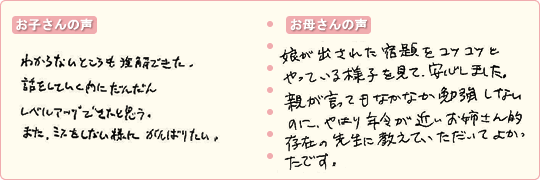 お子さんの声
わからないところも理解できた。
話をしていく内にだんだん
レベルアップできたと思う。
また、ミスをしない様に がんばりたい。
お母さんの声
娘が出された宿題をコツコツと
やっている様子を見て、安心しました。
親が言ってもなかなか勉強しない
のに、やはり年令が近いお姉さん的
存在の先生に教えていただいてよかっ
たです。